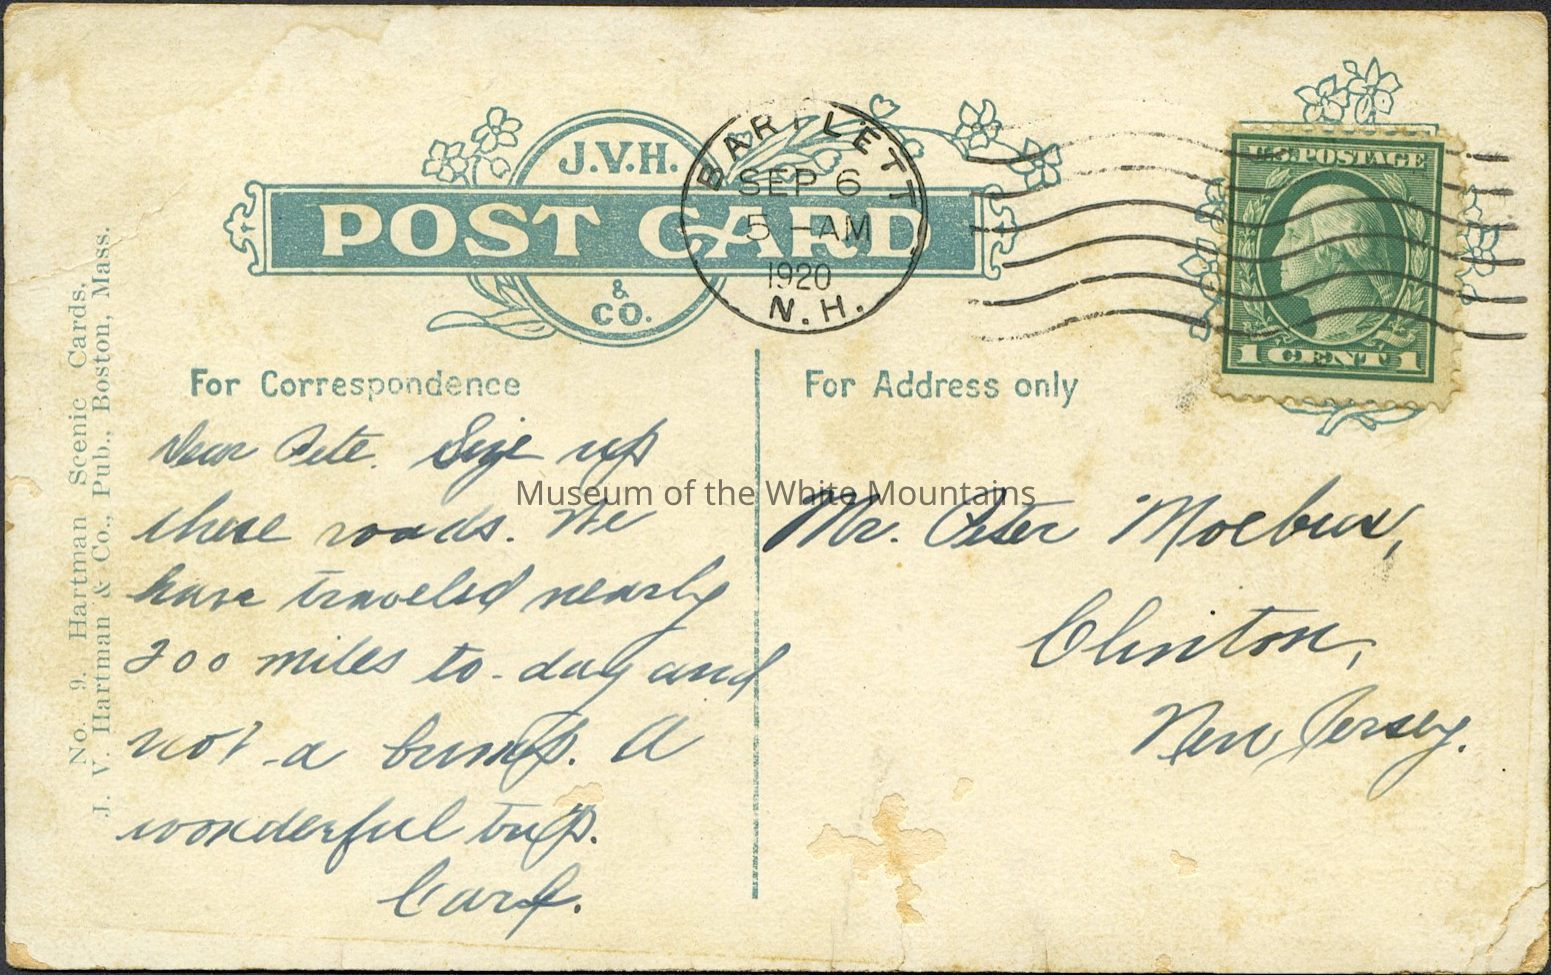 J.V.H.
POST CARD
& CO.
BARTLETT
SEP 6
5 -AM
1920
N.H.
U.S. POSTAGE
1 CENT 1
For Correspondence
For Address only
Dear Pete. Size up
these roads. We
have traveled nearly
200 miles to-day and
not a bump. A
wonderful trip.
Carl.
Mr. Peter Moebus,
Clinton,
New Jersey.
No. 9. Hartman Scenic Cards,
J. V. Hartman & Co., Pub., Boston, Mass.
Museum of the White Mountains